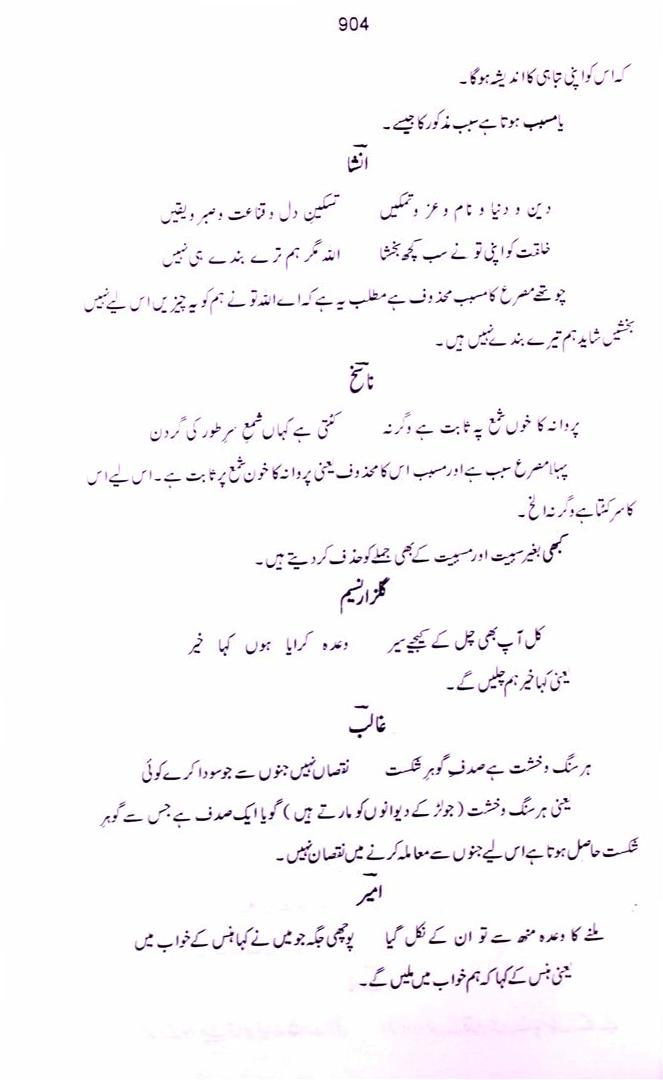 904
کہ اس کو اپنی تباہی کا اندیشہ ہوگا۔
یا مسبب ہوتا ہے سبب مذکور کا جیسے۔
انشا
دین و دنیا و نام و عز و تمکیں تسکینِ دل و قناعت و صبر و یقیں
خلقت کو اپنی تو نے سب کچھ بخشا اللہ مگر ہم ترے بندے ہی نہیں
چوتھے مصرع کا مسبب محذوف ہے مطلب یہ ہے کہ اے اللہ تو نے ہم کو یہ چیزیں اس لیے نہیں
بخشیں شاید ہم تیرے بندے نہیں ہیں۔
ناسخ
پروانہ کا خوں شمع پہ ثابت ہے وگرنہ کٹتی ہے کہاں شمعِ سرِ طور کی گردن
پہلا مصرع سبب ہے اور مسبب اس کا محذوف یعنی پروانہ کا خون شمع پر ثابت ہے۔ اس لیے اس
کا سر کٹتا ہے وگرنہ الخ۔
کبھی بغیر سببیت اور مسببیت کے بھی جملے کو حذف کر دیتے ہیں۔
گلزار نسیم
کل آپ بھی چل کے کیجیے سیر وعدہ کرایا ہوں کہا خیر
یعنی کہا خیر ہم چلیں گے۔
غالب
ہر سنگ و خشت ہے صدفِ گوہرِ شکست نقصاں نہیں جنوں سے جو سودا کرے کوئی
یعنی ہر سنگ و خشت (جو لڑکے دیوانوں کو مارتے ہیں) گویا ایک صدف ہے جس سے گوہرِ
شکست حاصل ہوتا ہے اس لیے جنوں سے معاملہ کرنے میں نقصان نہیں۔
امیر
ملنے کا وعدہ منھ سے تو ان کے نکل گیا پوچھی جگہ جو میں نے کہا ہنس کے خواب میں
یعنی ہنس کے کہا کہ ہم خواب میں ملیں گے۔